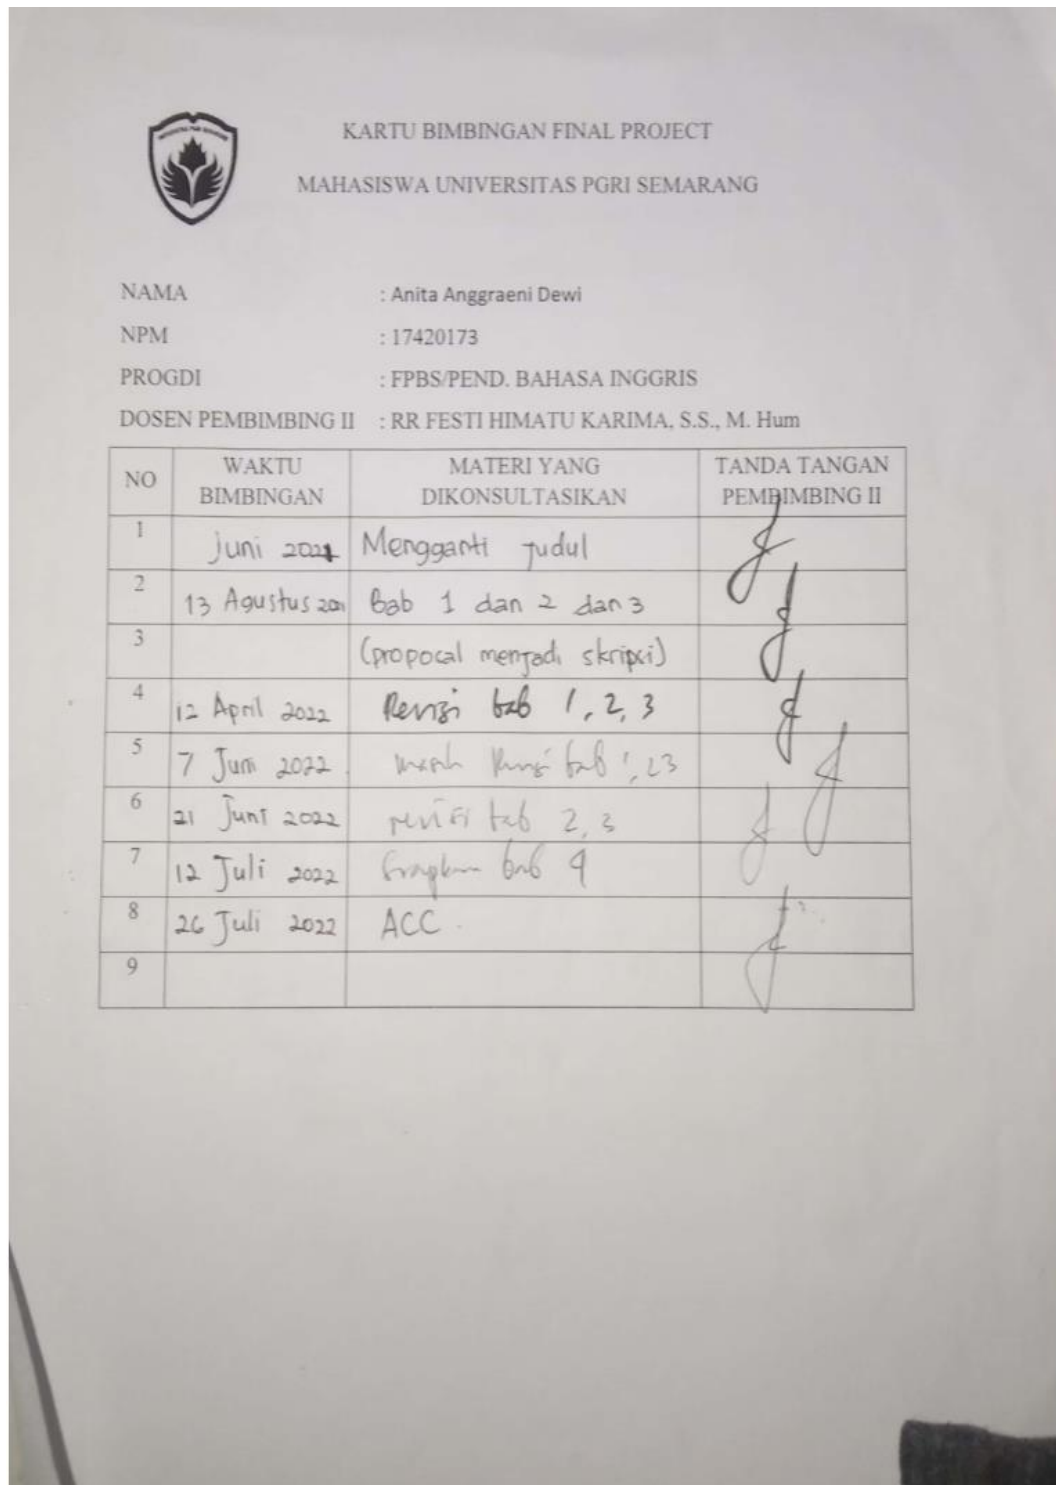 UNIVERSITAS PGRI SEMARANG
KARTU BIMBINGAN FINAL PROJECT
MAHASISWA UNIVERSITAS PGRI SEMARANG
NAMA : Anita Anggraeni Dewi
NPM : 17420173
PROGDI : FPBS/PEND. BAHASA INGGRIS
DOSEN PEMBIMBING II : RR FESTI HIMATU KARIMA, S.S., M. Hum
NO WAKTU BIMBINGAN MATERI YANG DIKONSULTASIKAN TANDA TANGAN PEMBIMBING II
1 Juni 2021 Mengganti judul
2 13 Agustus 2021 Bab 1 dan 2 dan 3
3 (proposal menjadi skripsi)
4 12 April 2022 Revisi bab 1, 2, 3
5 7 Juni 2022 masih Revisi bab 1, 2 3
6 21 Juni 2022 revisi bab 2, 3
7 12 Juli 2022 bab 4
8 26 Juli 2022 ACC
9